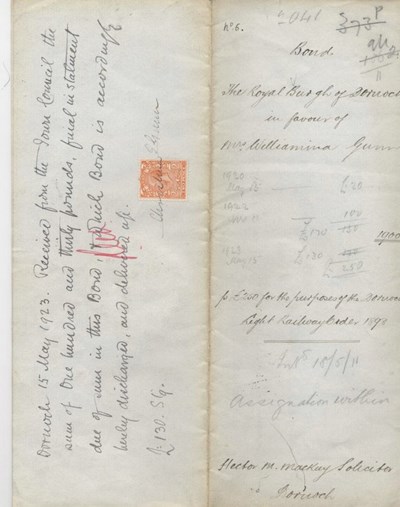 Dornoch 15 May 1923. Received from the Town Council the
sum of One hundred and thirty pounds, final instalment
due of sum in this Bond, which Bond is accordingly
hereby discharged, and delivered up.
£130. Stg.
No 6.
2041
Bond
The Royal Burgh of Dornoch
in favour of
Mrs Williamina Gunn
1920
May 15 £20
1922
100
£130 120
1900
1923
May 15 £130
£250
for £250 for the purposes of the Dornoch
Light Railway Order 1898
Int 15/5/11
Assignation within
Hector M. Mackay Solicitor
Dornoch